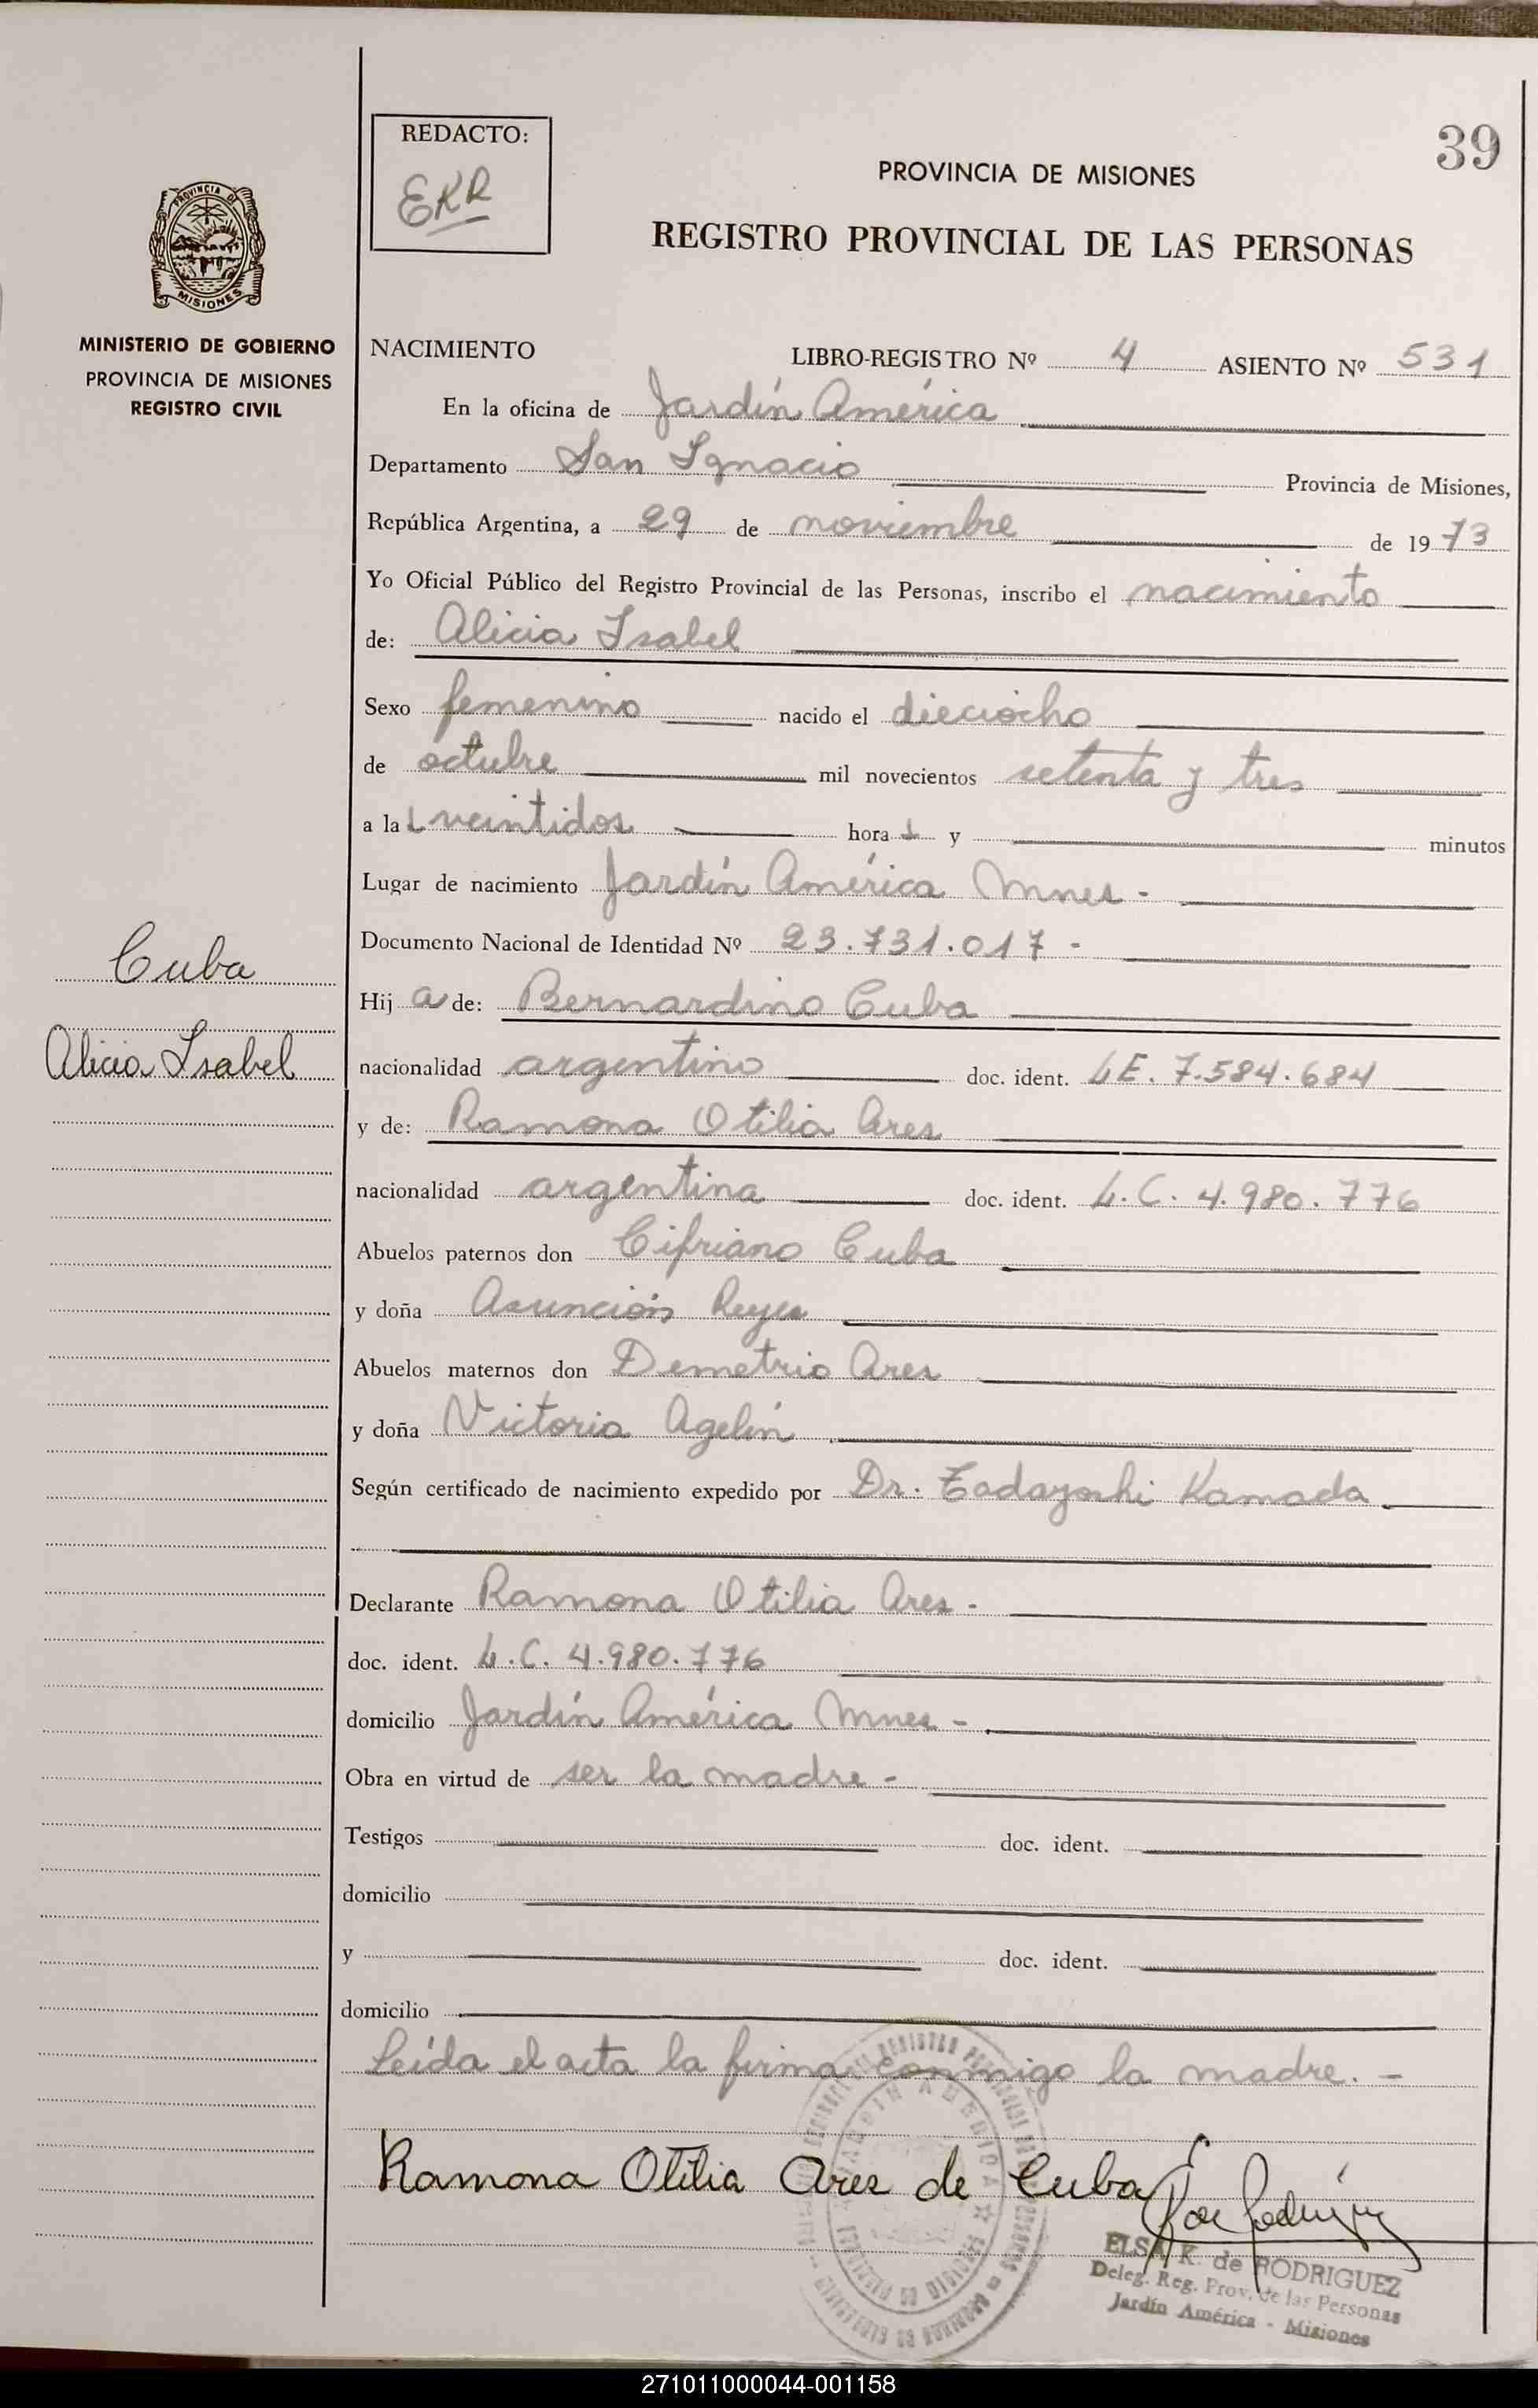 39
REDACTO:
EKR
PROVINCIA DE MISIONES
REGISTRO PROVINCIAL DE LAS PERSONAS
PROVINCIA DE
MISIONES
MINISTERIO DE GOBIERNO
PROVINCIA DE MISIONES
REGISTRO CIVIL
NACIMIENTO LIBRO-REGISTRO Nº 4 ASIENTO Nº 531
En la oficina de Jardín América
Departamento San Ignacio Provincia de Misiones,
República Argentina, a 29 de noviembre de 1973
Yo Oficial Público del Registro Provincial de las Personas, inscribo el nacimiento
de: Alicia Isabel
Sexo femenino nacido el dieciocho
de octubre mil novecientos setenta y tres
a las veintidos horas y minutos
Lugar de nacimiento Jardín América Mnes -
Documento Nacional de Identidad Nº 23.731.017 -
Cuba
Hija de: Bernardino Cuba
Alicia Isabel
nacionalidad argentino doc. ident. LE. 7.584.684
y de: Ramona Otilia Ares
nacionalidad argentina doc. ident. L.C. 4.980.776
Abuelos paternos don Cipriano Cuba
y doña Asunción Reyes
Abuelos maternos don Demetrio Ares
y doña Victoria Agelín
Según certificado de nacimiento expedido por Dr. Tadayoshi Kamada
Declarante Ramona Otilia Ares -
doc. ident. L.C. 4.980.776
domicilio Jardín América Mnes -
Obra en virtud de ser la madre -
Testigos doc. ident.
domicilio
y doc. ident.
domicilio
Leída el acta la firma conmigo la madre. -
Ramona Otilia Ares de Cuba
JARDIN AMERICA
ELSA K. de RODRIGUEZ
Deleg. Reg. Prov. de las Personas
Jardín América - Misiones
271011000044-001158